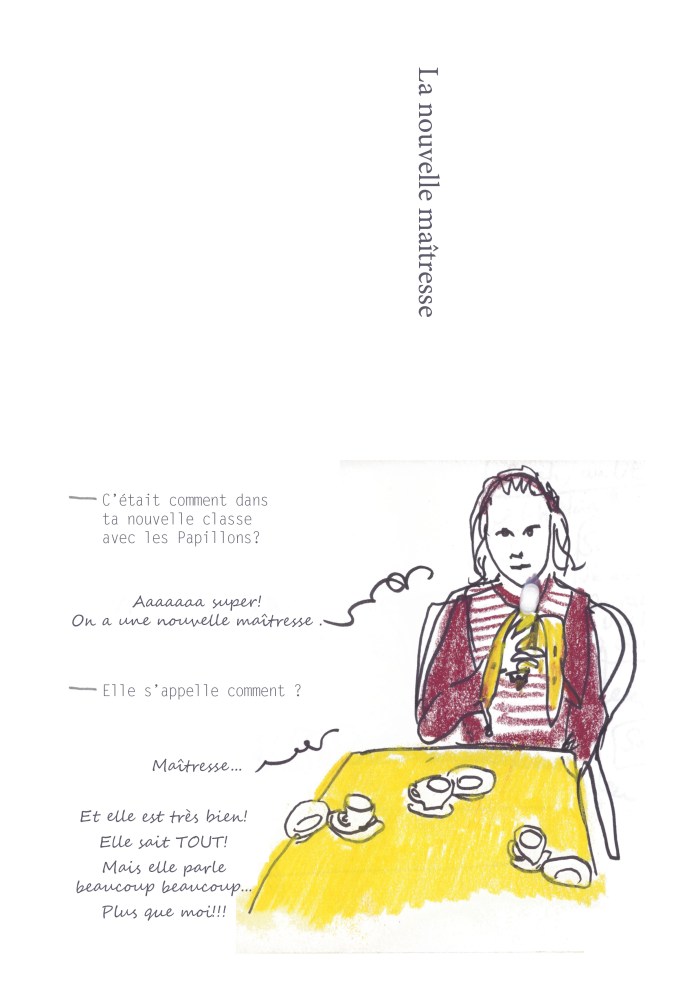 La nouvelle maîtresse
— C'était comment dans
ta nouvelle classe
avec les Papillons?
Aaaaaaa super!
On a une nouvelle maîtresse .
— Elle s'appelle comment ?
Maîtresse...
Et elle est très bien!
Elle sait TOUT!
Mais elle parle
beaucoup beaucoup...
Plus que moi!!!